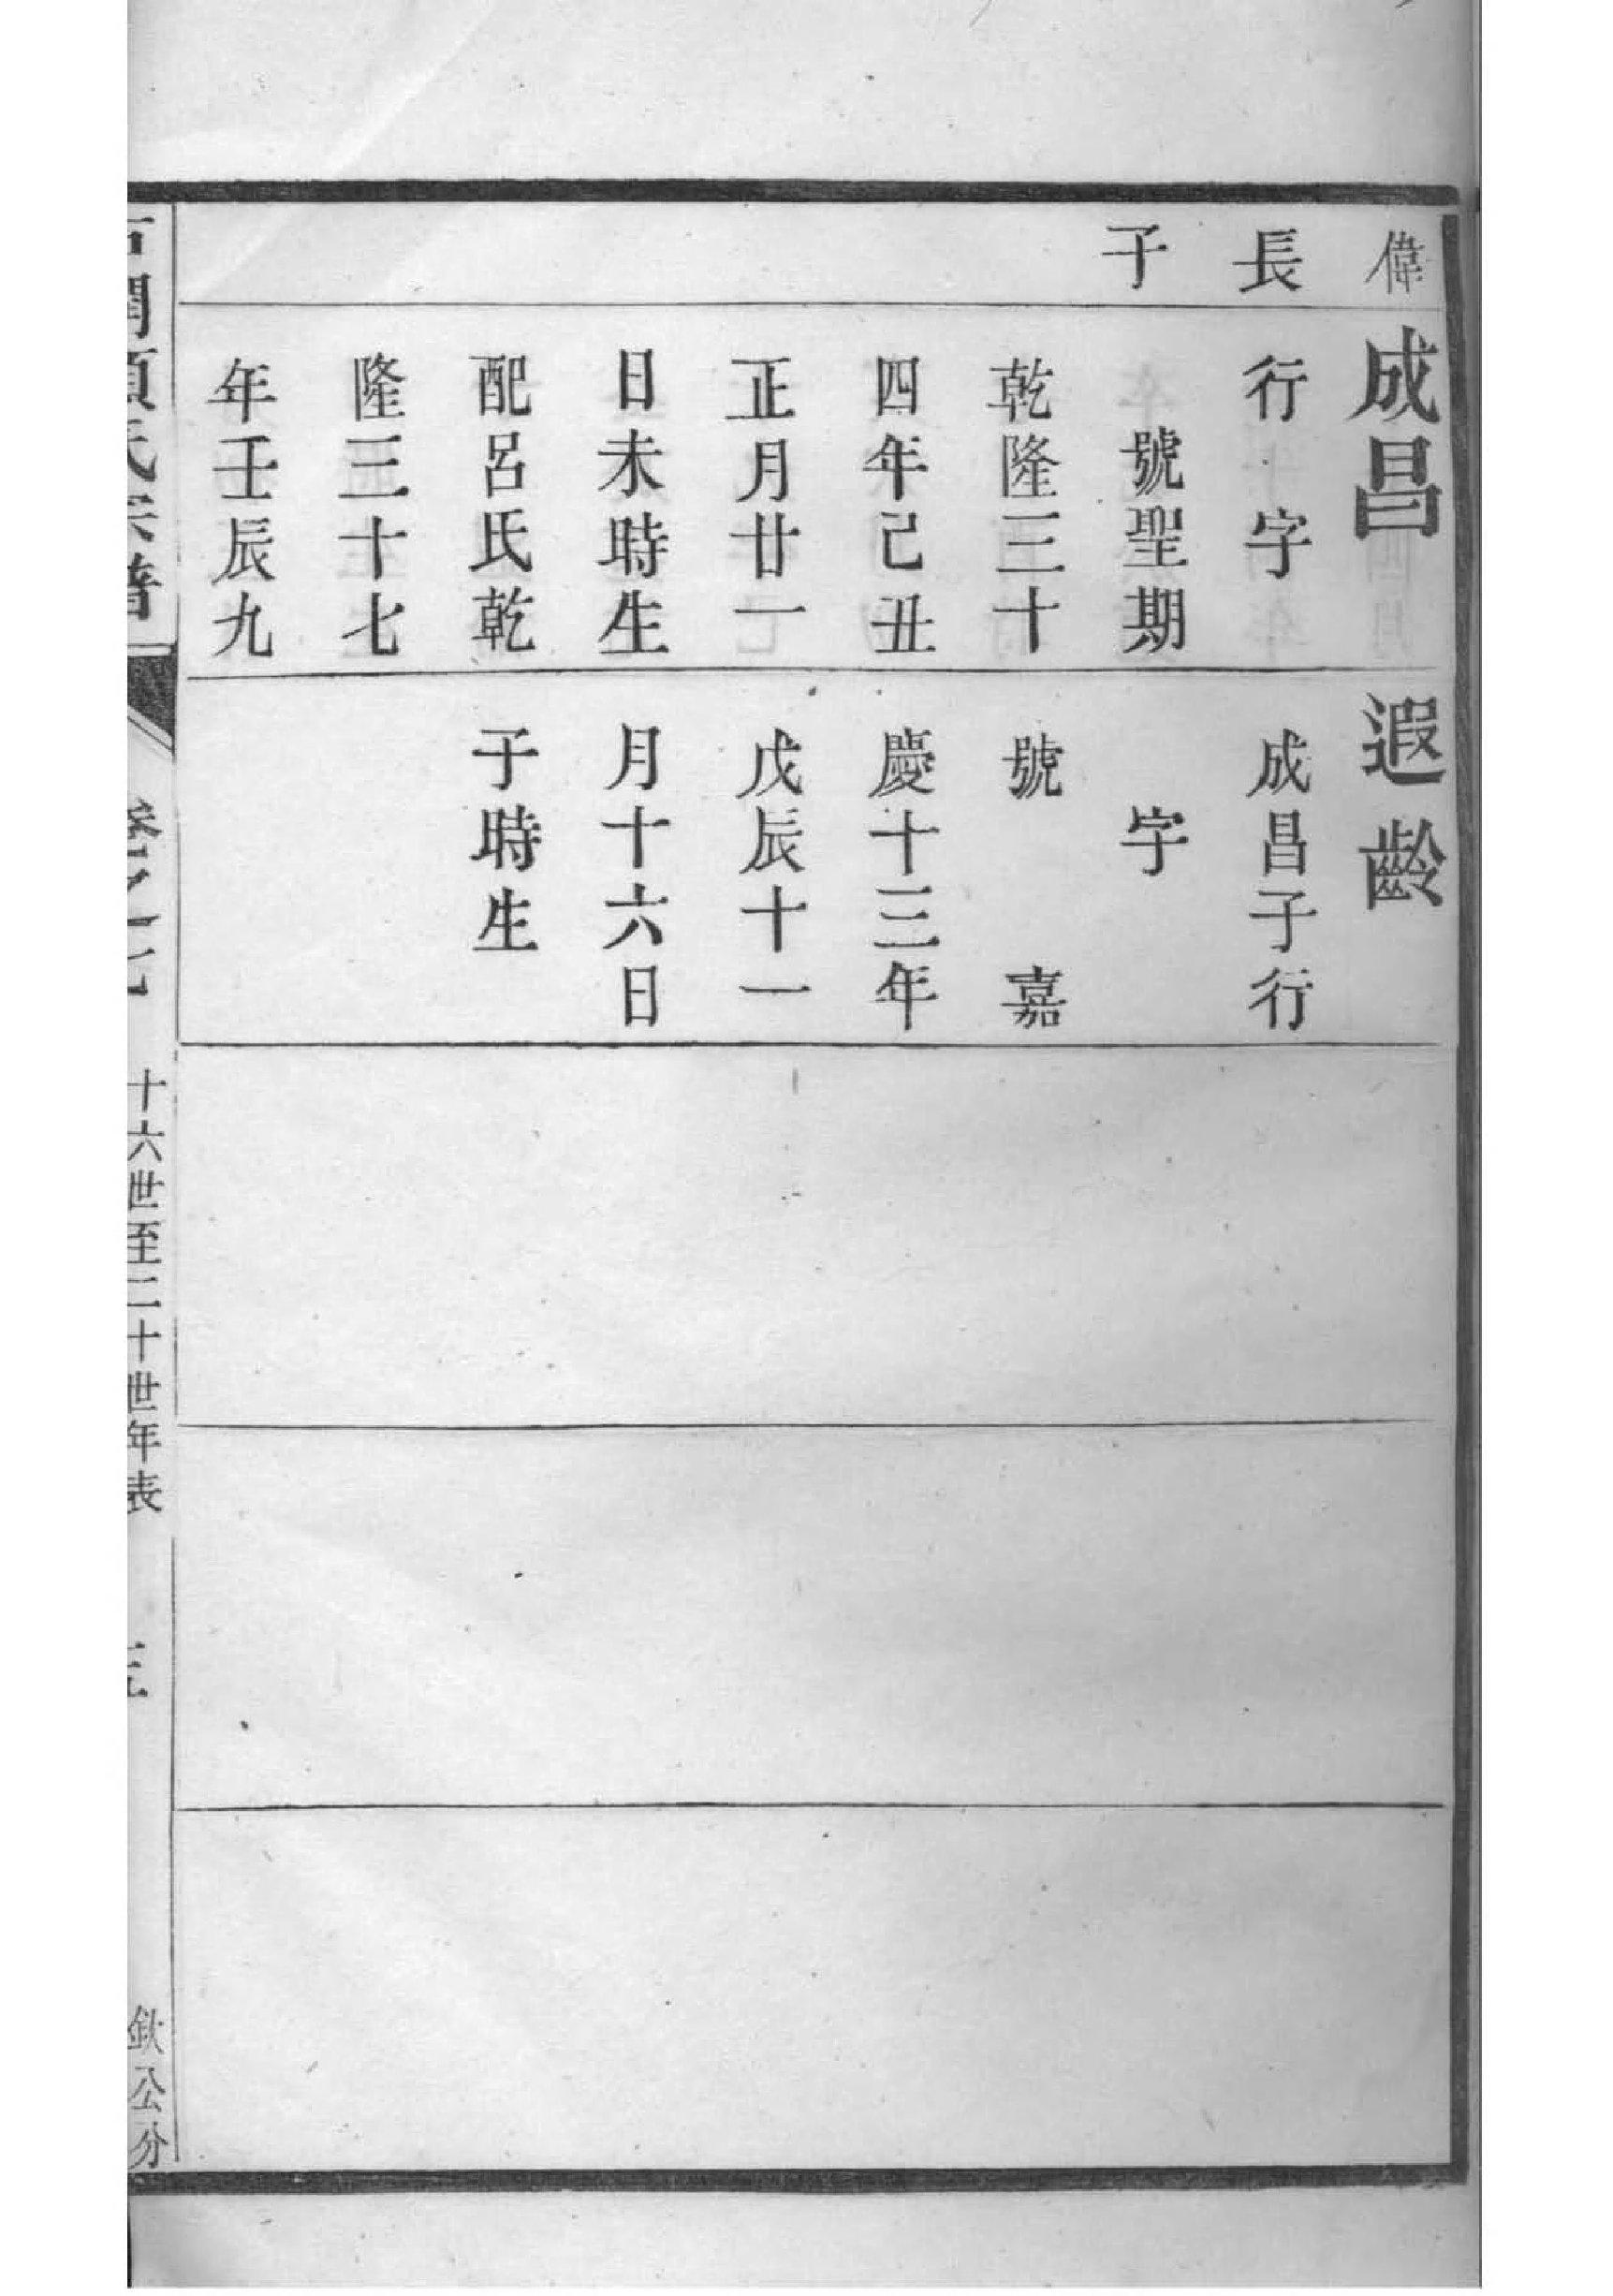 偉
長
子
成昌
行 字
號聖期
乾隆三十
四年己丑
正月廿一
日未時生
配呂氏乾
隆三十七
年壬辰九
遐齡
成昌子行
字
號 嘉
慶十三年
戊辰十一
月十六日
于時生
氏宗譜
卷之十七
十六世至二十世年表
欽公分